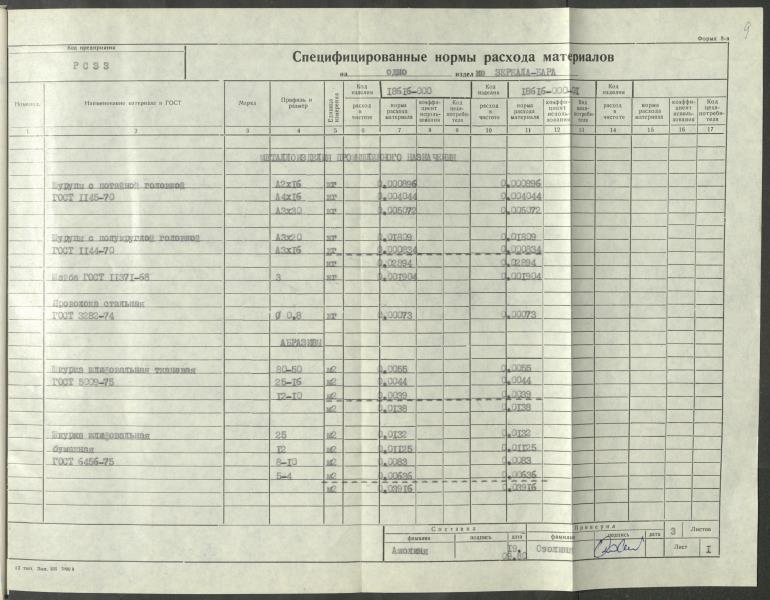 9
Форма 8-а
Код предприятия
РСЗЗ
Специфицированные нормы расхода материалов
на ОДНО издел ИЕ ЗЕРКАЛА-БАРА
Номенкл. Наименование материала и ГОСТ Марка Профиль и размер Единица измерения Код изделия I86I6-000 Код изделия I86I6-000-0I Код изделия
расход в чистоте норма расхода материала коэффициент использования Код цеха-потребителя расход в чистоте норма расхода материала коэффициент использования Код цеха-потребителя расход в чистоте норма расхода материала коэффициент использования Код цеха-потребителя
1 2 3 4 5 6 7 8 9 10 11 12 13 14 15 16 17
МЕТАЛЛОИЗДЕЛИЯ ПРОМЫШЛЕННОГО НАЗНАЧЕНИЯ
Шурупы с потайной головкой А2хI6 кг 0,000896 0,000896
ГОСТ II45-70 А4хI6 кг 0,004044 0,004044
А3х30 кг 0,005072 0,005072
Шурупы с полукруглой головкой А3х20 кг 0,0I809 0,0I809
ГОСТ II44-70 А3хI6 кг 0,000834 0,000834
кг 0,02894 0,02894
Шайба ГОСТ II37I-68 3 кг 0,00I904 0,00I904
Проволока стальная
ГОСТ 3282-74 Ø 0,8 кг 0,00073 0,00073
АБРАЗИВЫ
Шкурка шлифовальная тканевая 80-50 м2 0,0055 0,0055
ГОСТ 5009-75 25-I6 м2 0,0044 0,0044
I2-I0 м2 0,0039 0,0039
м2 0,0I38 0,0I38
Шкурка шлифовальная 25 м2 0,0I32 0,0I32
бумажная I2 м2 0,0II25 0,0II25
ГОСТ 6456-75 8-I0 м2 0,0083 0,0083
5-4 м2 0,00636 0,00636
м2 0,039I6 0,039I6
Составил Проверил 3 Листов
фамилия подпись дата фамилия подпись дата Лист I